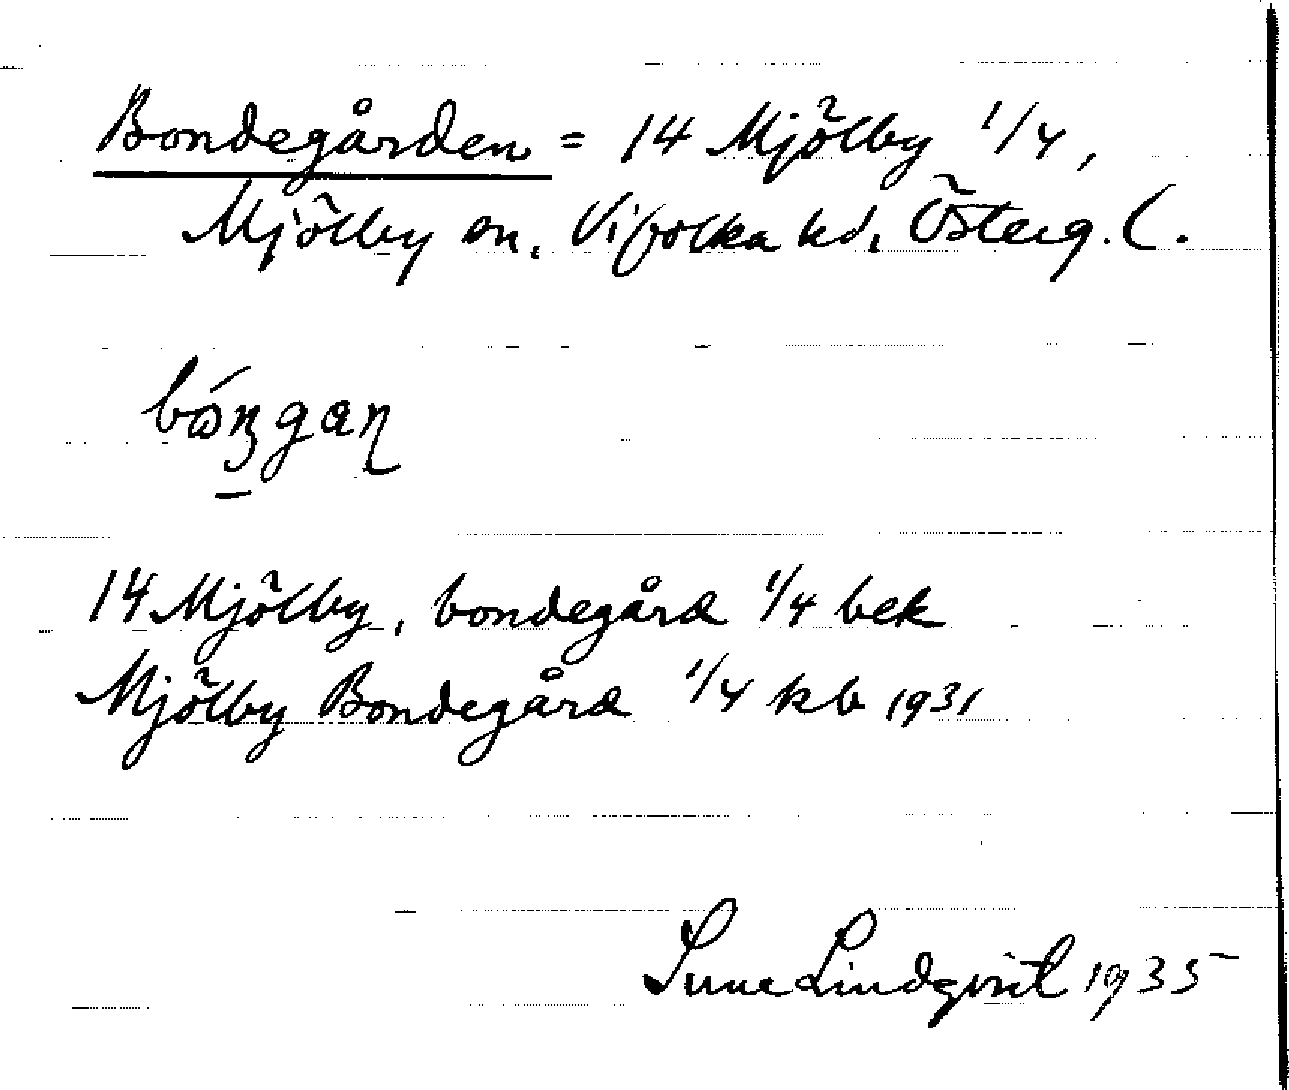 Bondegården = 14 Mjölby 1/4,
Mjölby sn. Vifolka hd, Österg. L.
14 Mjölby, bondegård 1/4 bek
Mjölby Bondegård 1/4 kb 1931
Sune Lindqvist 1935